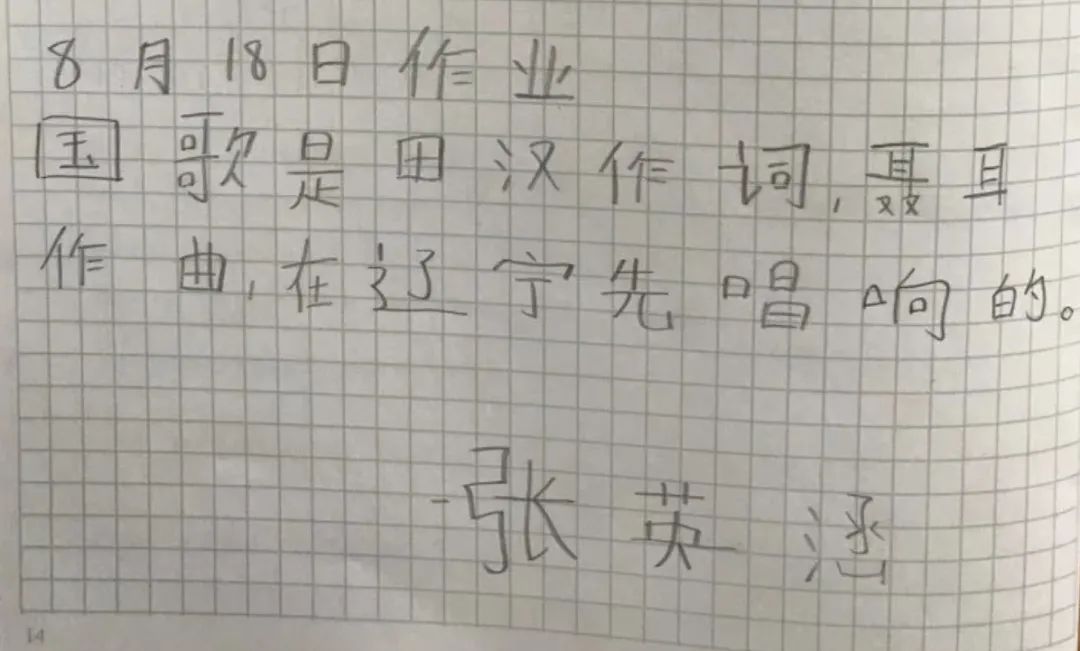 8月18日作业
国歌是田汉作词,聂耳
作曲,在辽宁先唱响的。
张英涵
14